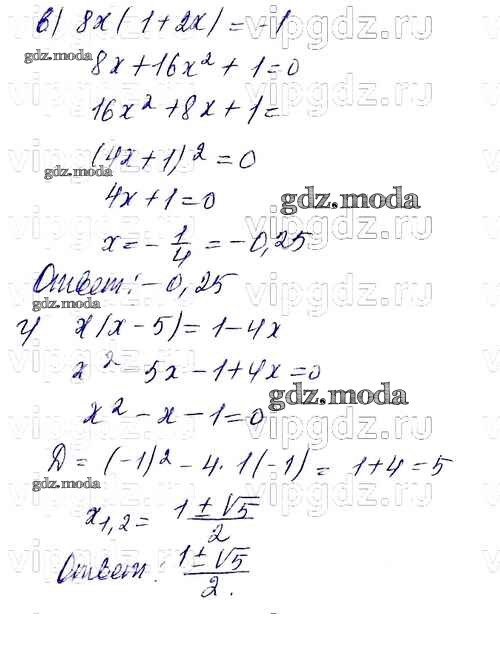 в) 8x(1+2x)=-1
8x+16x²+1=0
16x²+8x+1=
(4x+1)²=0
gdz.moda
4x+1=0
gdz.moda
x=-1/4=-0,25
Ответ: -0,25
gdz.moda
г) x(x-5)=1-4x
x²-5x-1+4x=0
gdz.moda
x²-x-1=0
D=(-1)²-4·1(-1)=1+4=5
gdz.moda
x1,2=(1±√5)/2
Ответ: (1±√5)/2.
vipgdz.ru